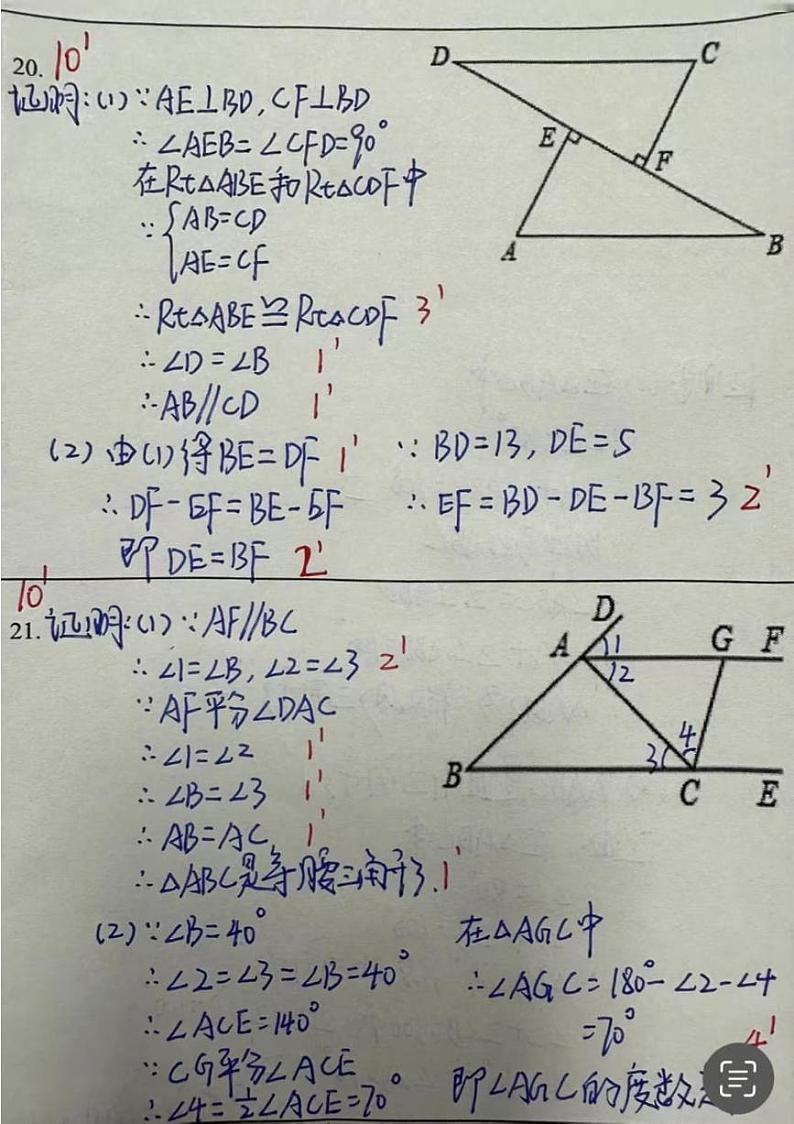 20. 10'
证明:(1)∵AE⊥BD,CF⊥BD
∴∠AEB=∠CFD=90°
在Rt△ABE和Rt△CDF中
∵{AB=CD
AE=CF
∴Rt△ABE≌Rt△CDF 3'
∴∠D=∠B 1'
∴AB//CD 1'
(2)由(1)得BE=DF 1'
∴DF-EF=BE-EF
即DE=BF 2'
∵BD=13,DE=5
∴EF=BD-DE-BF=3 2'
D
C
E
F
A
B
10'
21. 证明:(1)∵AF//BC
∴∠1=∠B,∠2=∠3 2'
∵AF平分∠DAC
∴∠1=∠2 1'
∴∠B=∠3 1'
∴AB=AC 1'
∴△ABC是等腰三角形. 1'
(2)∵∠B=40°
∴∠2=∠3=∠B=40°
∴∠ACE=140°
∵CG平分∠ACE
∴∠4=1/2∠ACE=70°
在△AGC中
∴∠AGC=180°-∠2-∠4
=70°
4'
即∠AGC的度数
D
A 1 G F
2
4
B 3
C E